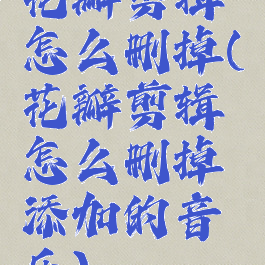 花瓣剪辑
怎么删掉(
花瓣剪辑
怎么删掉
添加的音
乐)